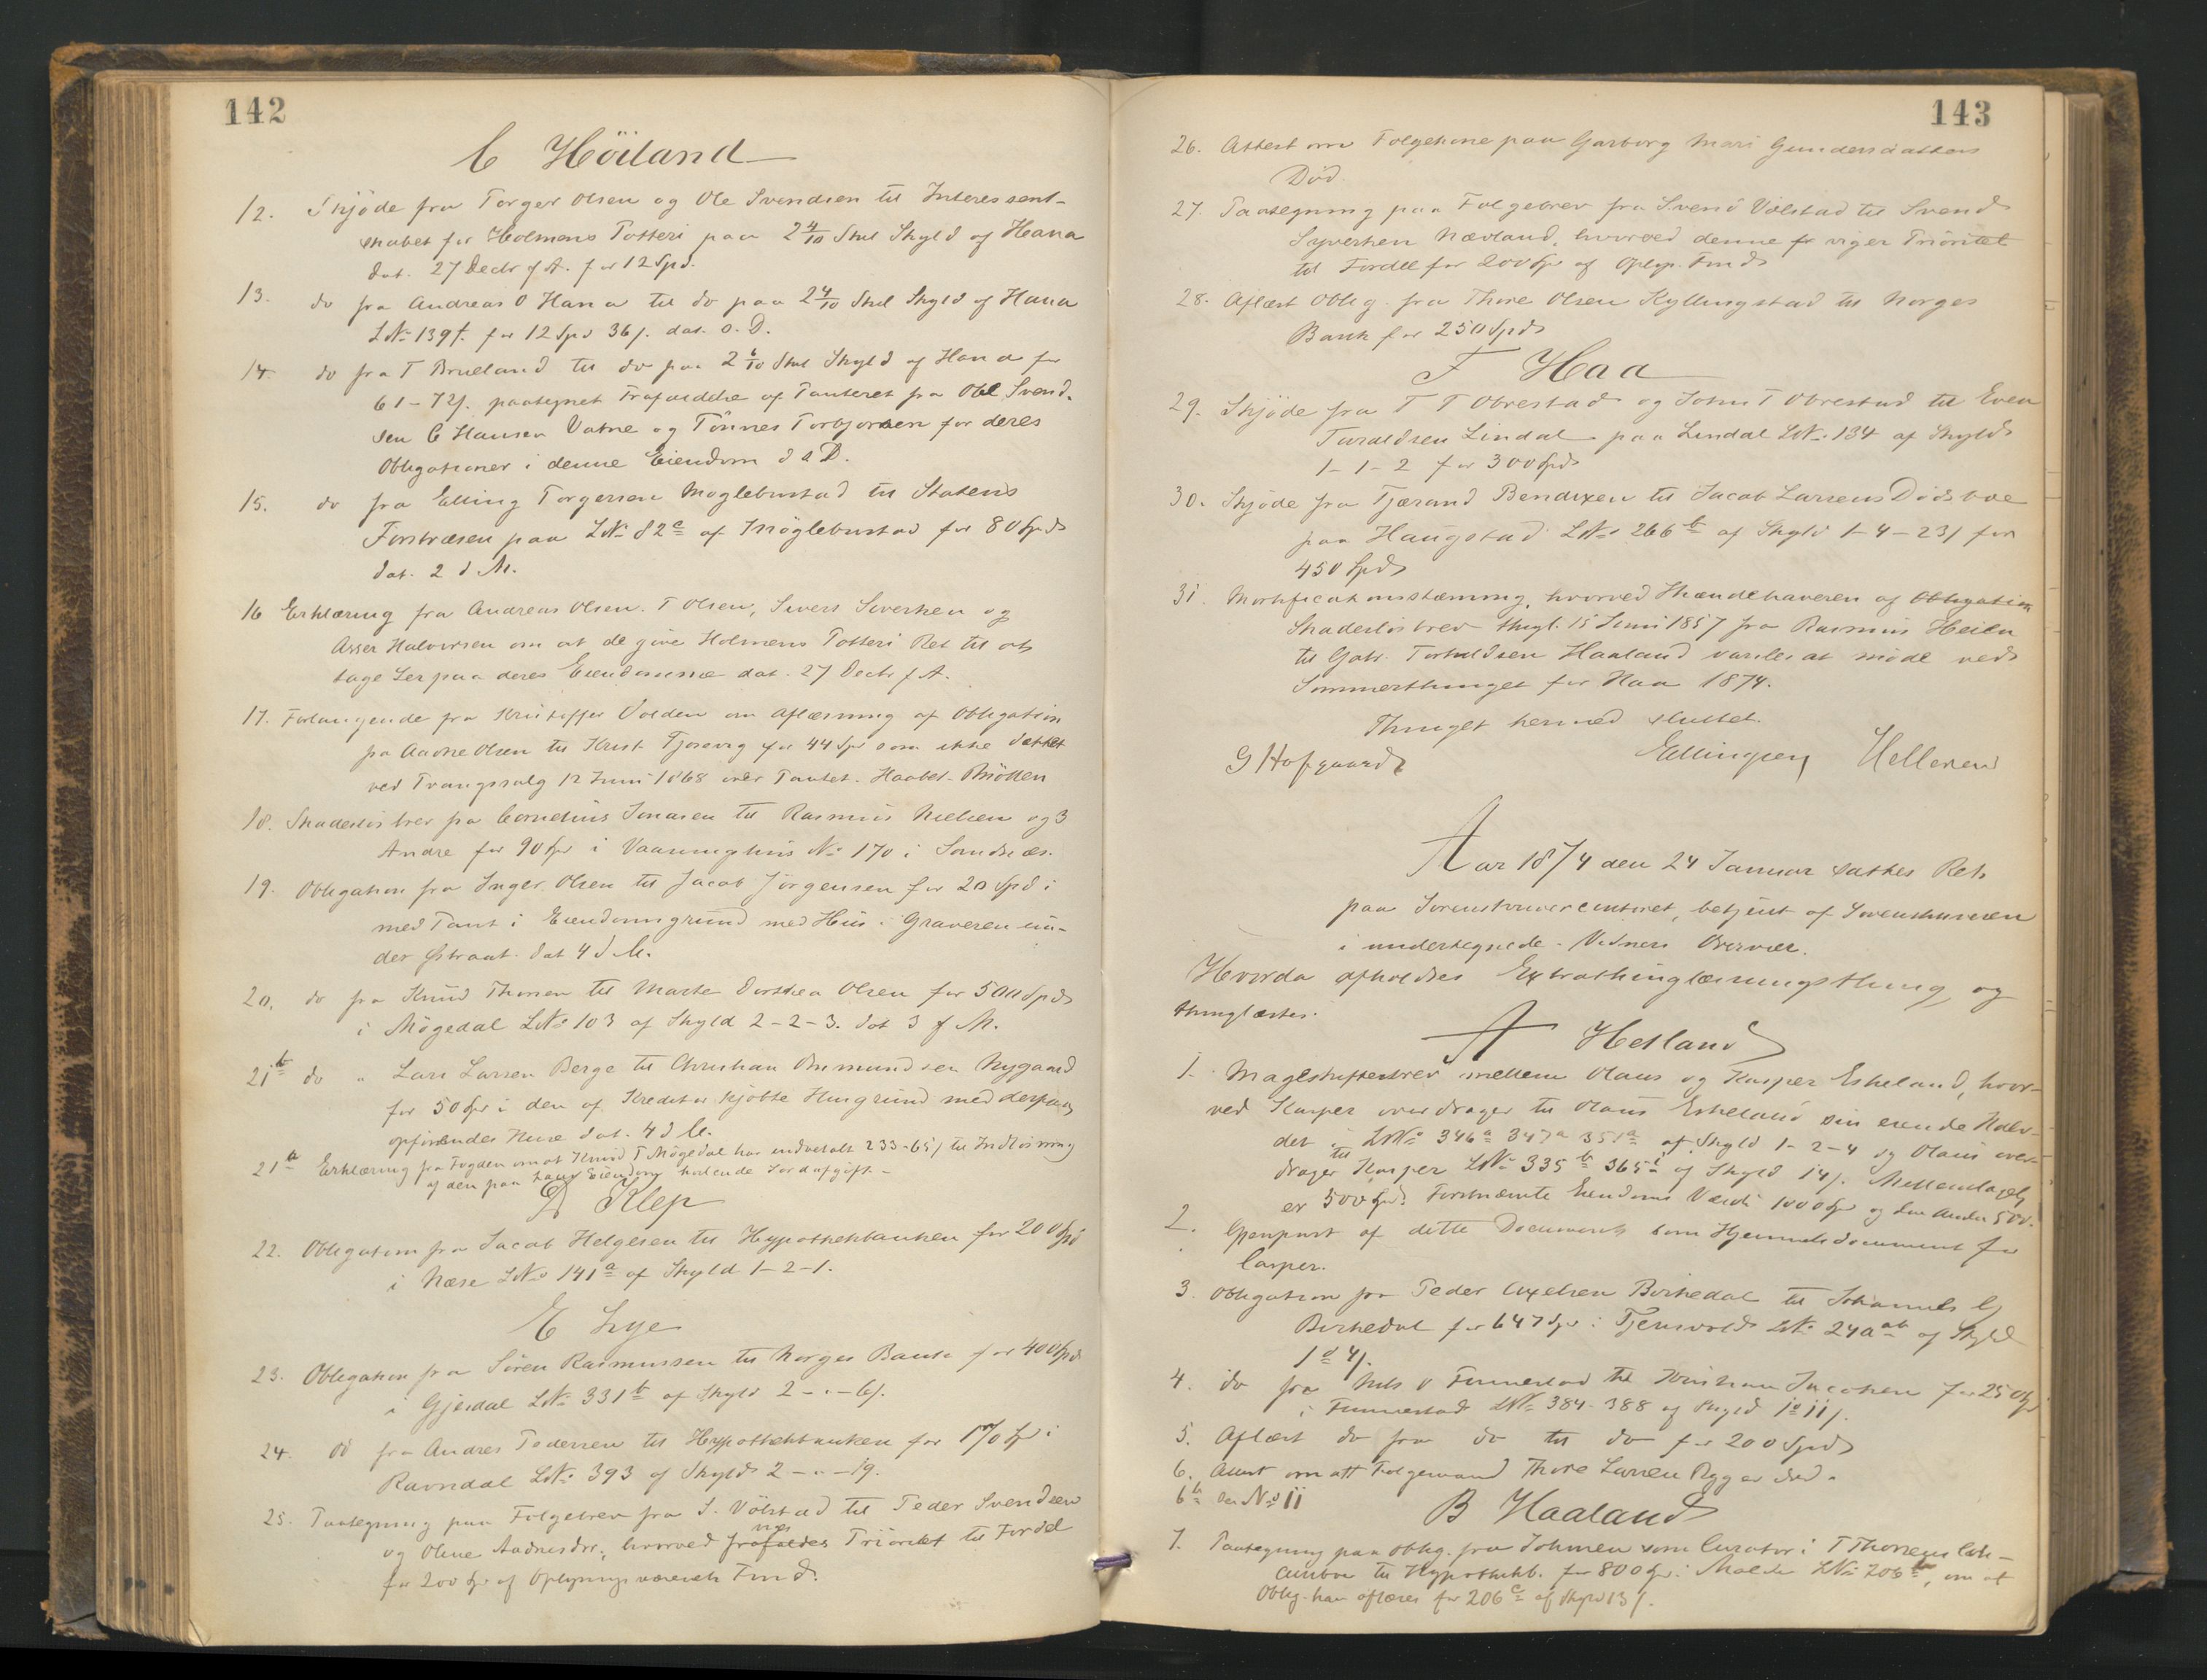 142
C Höiland
12. Skjöde fra Torger Olsen og Ole Svendsen til Interessent-
skabet for Holmens Potteri paa 2 4/10 Skil Skyld af Hana
dat. 27 Decbr f A. for 12 Spd.
13. do fra Andreas O Hana til do paa 2 4/10 Skil Skyld af Hana
LNo 139f. for 12 Spd 36 s. dat. s. D.
14. do fra T Brueland til do paa 2 6/10 Skil Skyld af Hana for
61-72 s. paategnet Frafaldelse af Panteret fra Ole Svend-
sen C Hansen Vatne og Tönnes Torbjörnsen for deres
Obligationer i denne Eiendom d s D.
15. do fra Elling Torgersen Möglebustad til Statens
Forstvæsen paa LNo 82 c af Möglebustad for 80 Spd
dat. 2 d M.
16 Erklæring fra Andreas Olsen. T Olsen, Sivert Siversen og
Asser Halvorsen om at de give Holmens Potteri Ret til at
tage Ler paa deres Eiendomme dat. 27 Decbr f A.
17. Forlangende fra Kristoffer Volden om Aflæsning af Obligation
fra Aadne Olsen til Krist Tjosevig for 44 Spd som ikke dækket
ved Tvangssalg 12 Juni 1868 over Pantet. Haabet-Braatten
18. Skadeslösbrev fra Cornelius Jonasen til Rasmus Nielsen og 3
Andre for 90 Spd i Vaaningshus No 170 i Sandnæs.
19. Obligation fra Inger Olsen til Jacob Jörgensen for 20 Spd i
med Pant i Eiendomsgrund med Hus i Graveren un-
der Östraat. dat 4 d M.
20. do fra Knud Thorsen til Marte Dorthea Olsen for 500 Spd
i Mögedal LNo 103 af Skyld 2-2-3. dat 3 f M.
21 b do " Lars Larsen Berge til Christian Osmundsen Nygaard
for 50 Spd i den af Kreditor kjöbte Husgrund med derpaa
opförendes Huse dat. 4 d M.
21 a Erklæring fra Fogden om at Knud T Mögedal har indbetalt 233-65 s til Indlösning
af den paa hans Eiendom hvilende Jordafgift.-
D Klep
22. Obligation fra Jacob Helgesen til Hypothekbanken for 200 Spd
i Næse LNo 141 a af Skyld 1-2-1.
E Lye
23. Obligation fra Sören Rasmussen til Norges Bank for 400 Spd
i Gjesdal LNo 331 b af Skyld 2-"-6 s.
24. do fra Andres Pedersen til Hypothekbanken for 170 Spd i
Ravndal LNo 393 af Skyld 2-"-19.
25. Paategning paa Folgebrev fra S. Völstad til Peder Svendsen
og Oline Aadnesdtr., hvorved frafaldes viges Prioritet til Fordel
for 200 Spd af Oplysningsvæsenets Fond.
143
26. Attest om Folgekone paa Garborg Mari Gundersdatters
Död
27. Paategning paa Folgebrev fra Svend Völstad til Svend
Syversen Nævland, hvorved denne fr viger Prioritet
til Fordel for 200 Spd af Oplysn. Fond
28. Aflæst Oblig. fra Thore Olsen Kyllingstad til Norges
Bank for 250 Spd
F Haa
29. Skjöde fra T T Obrestad og John T Obrestad til Even
Taraldsen Lindal paa Lindal LNo 134 af Skyld
1-1-2 for 300 Spd
30. Skjöde fra Tjærand Bendixen til Jacob Larsens Dödsboe
paa Haugstad LNo 266 b af Skyld 1-4-23 s for
450 Spd
31. Mortificationsstævning, hvorved Ihændehaveren af Obligation
Skadeslösbrev thgl. 15 Juni 1857 fra Rasmus Heien
til Gabr. Torkeldsen Haaland varsles at möde ved
Sommerthinget for Haa 1874.
Thinget hermed sluttet.
G Hofgaard Ellingsen Helleren
Aar 1874 den 24 Januar sattes Ret
paa Sorenskrivercontoret, betjent af Sorenskriveren
i undertegnede Vidners Overvær.
Hvorda afholdtes Extrathinglæsningsthing og
thinglæstes.
A Hetland
1. Mageskiftebrev mellem Olaus og Kasper Eskeland, hvor-
ved Kasper overdrager til Olaus Eskeland sin eiende Halv-
det i LNo 346 a 347 a 351 a af Skyld 1-2-4 og Olaus over-
drager til Kasper LNo 335 b 365 i af Skyld 14 s. Mellemlaget
er 500 Spd. Forstnævnte Eiendoms Værdi 1000 Spd og den Anden 500.
2. Gjenpart af dette Document som Hjemmelsdocument for
Casper.
3. Obligation fra Peder Axelsen Birkedal til Johannes G
Birkedal for 647 Spd i Tjensvold LNo 24a ab af Skyld
1 d 4 s.
4. do fra Nils O Finnestad til Kristian Jacobsen for 250 Spd
i Finnestad LNo 384-388 af Skyld 1 d 11 s.
5. Aflæst do fra do til do for 200 Spd
6. Attest om att Folgemand Thore Larsen Rygg er död.
6 b Se No 11
B Haaland
7. Paategning paa Oblig. fra Johnsen som Curator i T Thorsens Cot-
cursbo til Hypothekb. for 800 Spd i Malde LNo 206 b, om at
Oblig. kan aflæses for 206 c af Skyld 13 s.